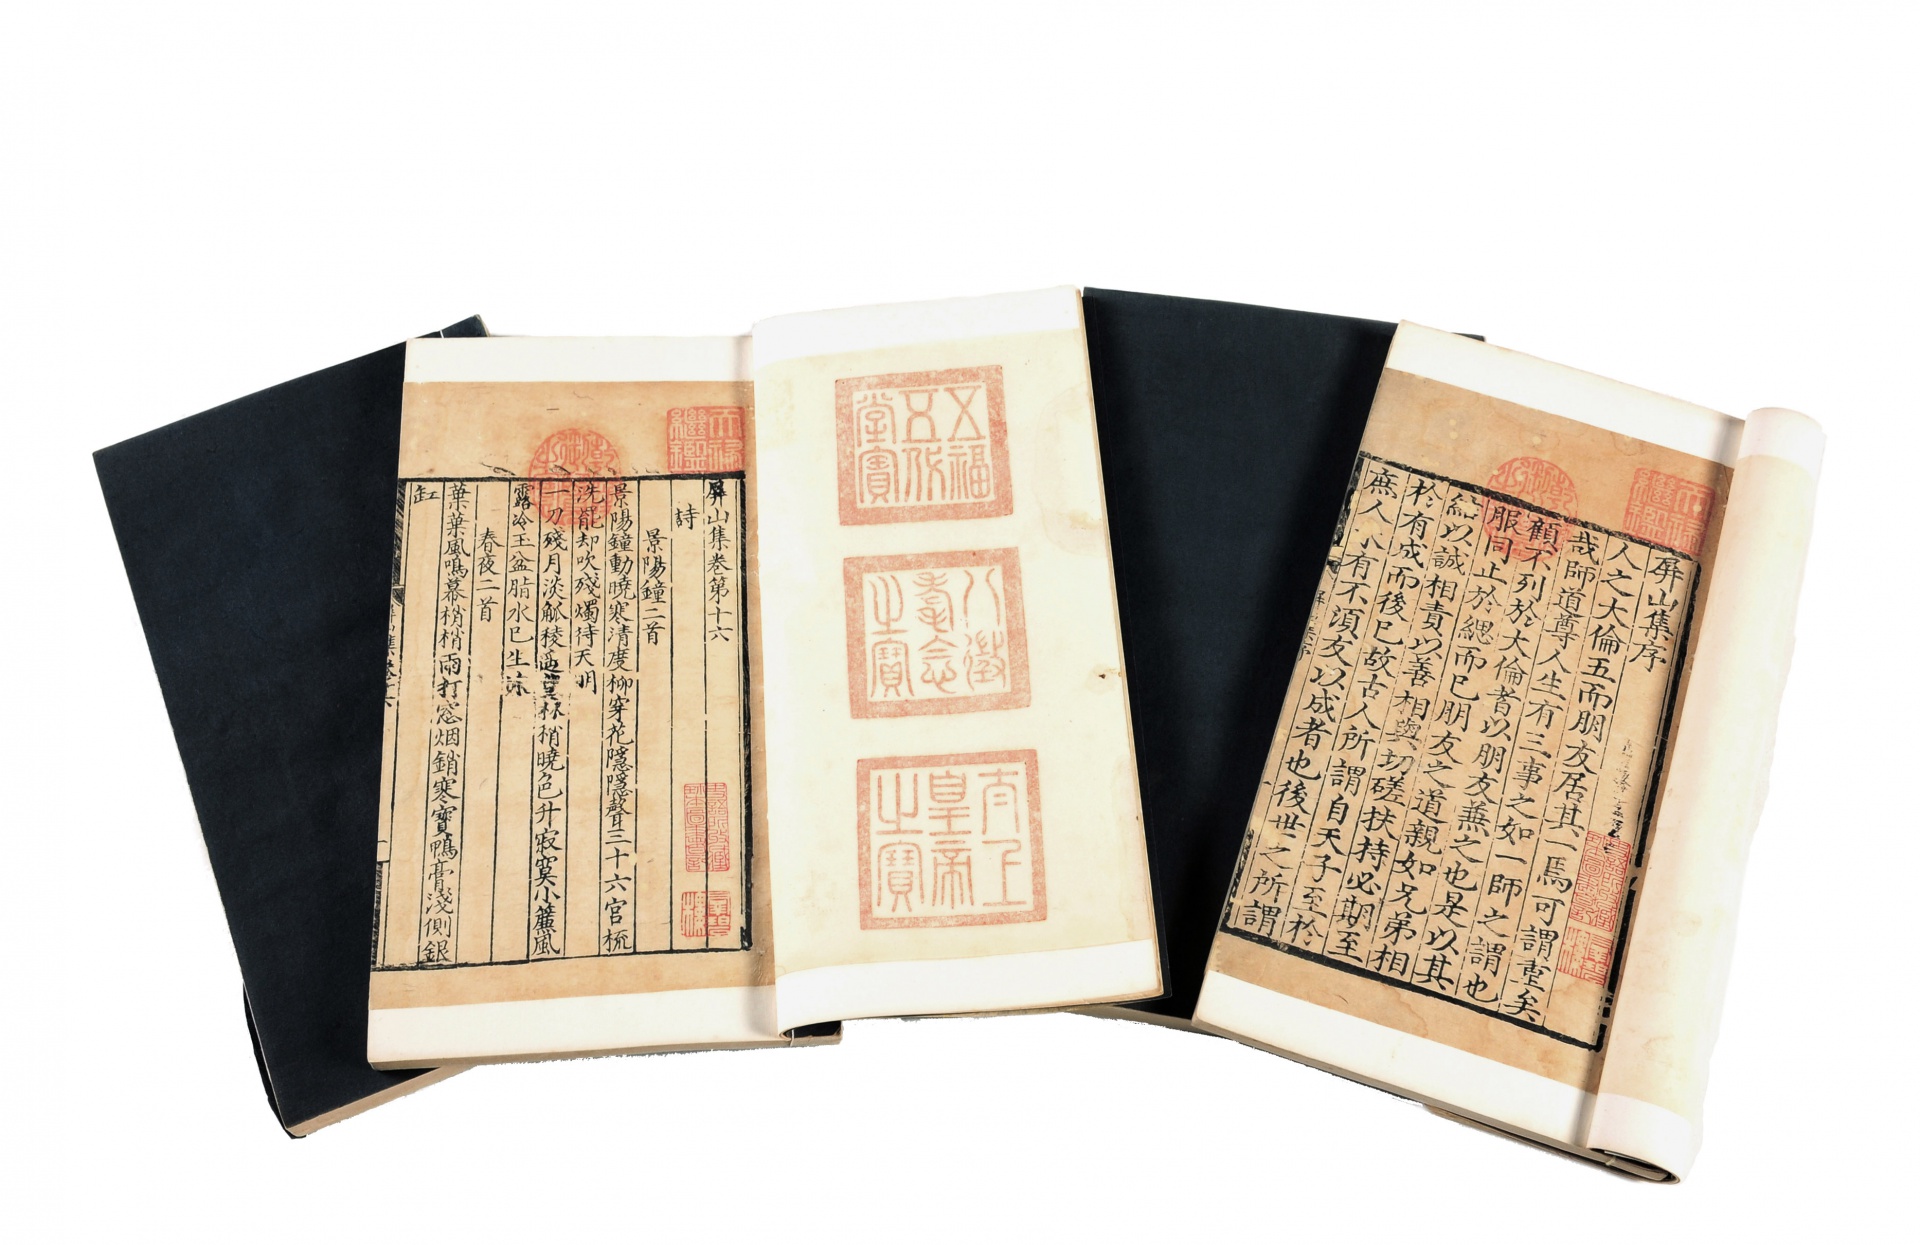 屏山集序
人之大倫五而朋友居其一焉可謂重矣
哉師道尊人生有三事之如一師之謂也
顧不列於大倫者以朋友兼之也是以其
服同止於緦而已朋友之道親如兄弟相
給以誠相責以善相與切磋扶持必期至
於有成而後已故古人所謂自天子至於
庶人 有不須友以成者也後世之所謂
天祿
繼鑑
五福
五代
堂寶
八徵
耄念
之寶
太上
皇帝
之寶
屏山集卷第十六
詩
景陽鐘二首
景陽鐘動曉寒清度柳穿花隱隱聲三十六宮梳
洗罷却吹殘燭待天明
一刀殘月淡觚稜 林梢曉色升寂寞小簾風
露冷玉盆脂水已生
春夜二首
葉葉風鳴幕梢梢雨打窓烟銷寒寶鴨膏淺側銀
缸
天祿
繼鑑